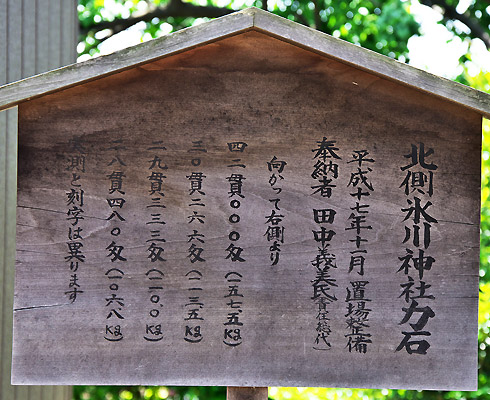 北側氷川神社力石
平成十七年十一月 置場整備
奉納者 田中義美氏(責任総代)
向かって右側より
四二貫〇〇〇匁(一五七.五kg)
三〇貫二六六匁(一一三.五kg)
二九貫三三三匁(一一〇.〇kg)
二八貫四八〇匁(一〇六.八kg)
実測と刻字は異ります